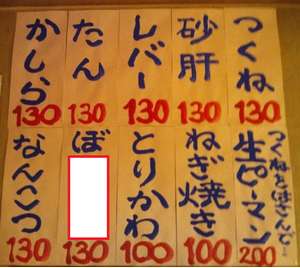 つくね
130
砂肝
130
レバー
130
たん
130
かしら
130
つくねとはさんで
生ピーマン
200
ねぎ焼き
100
とりかわ
100
ぼ
130
なんこつ
130